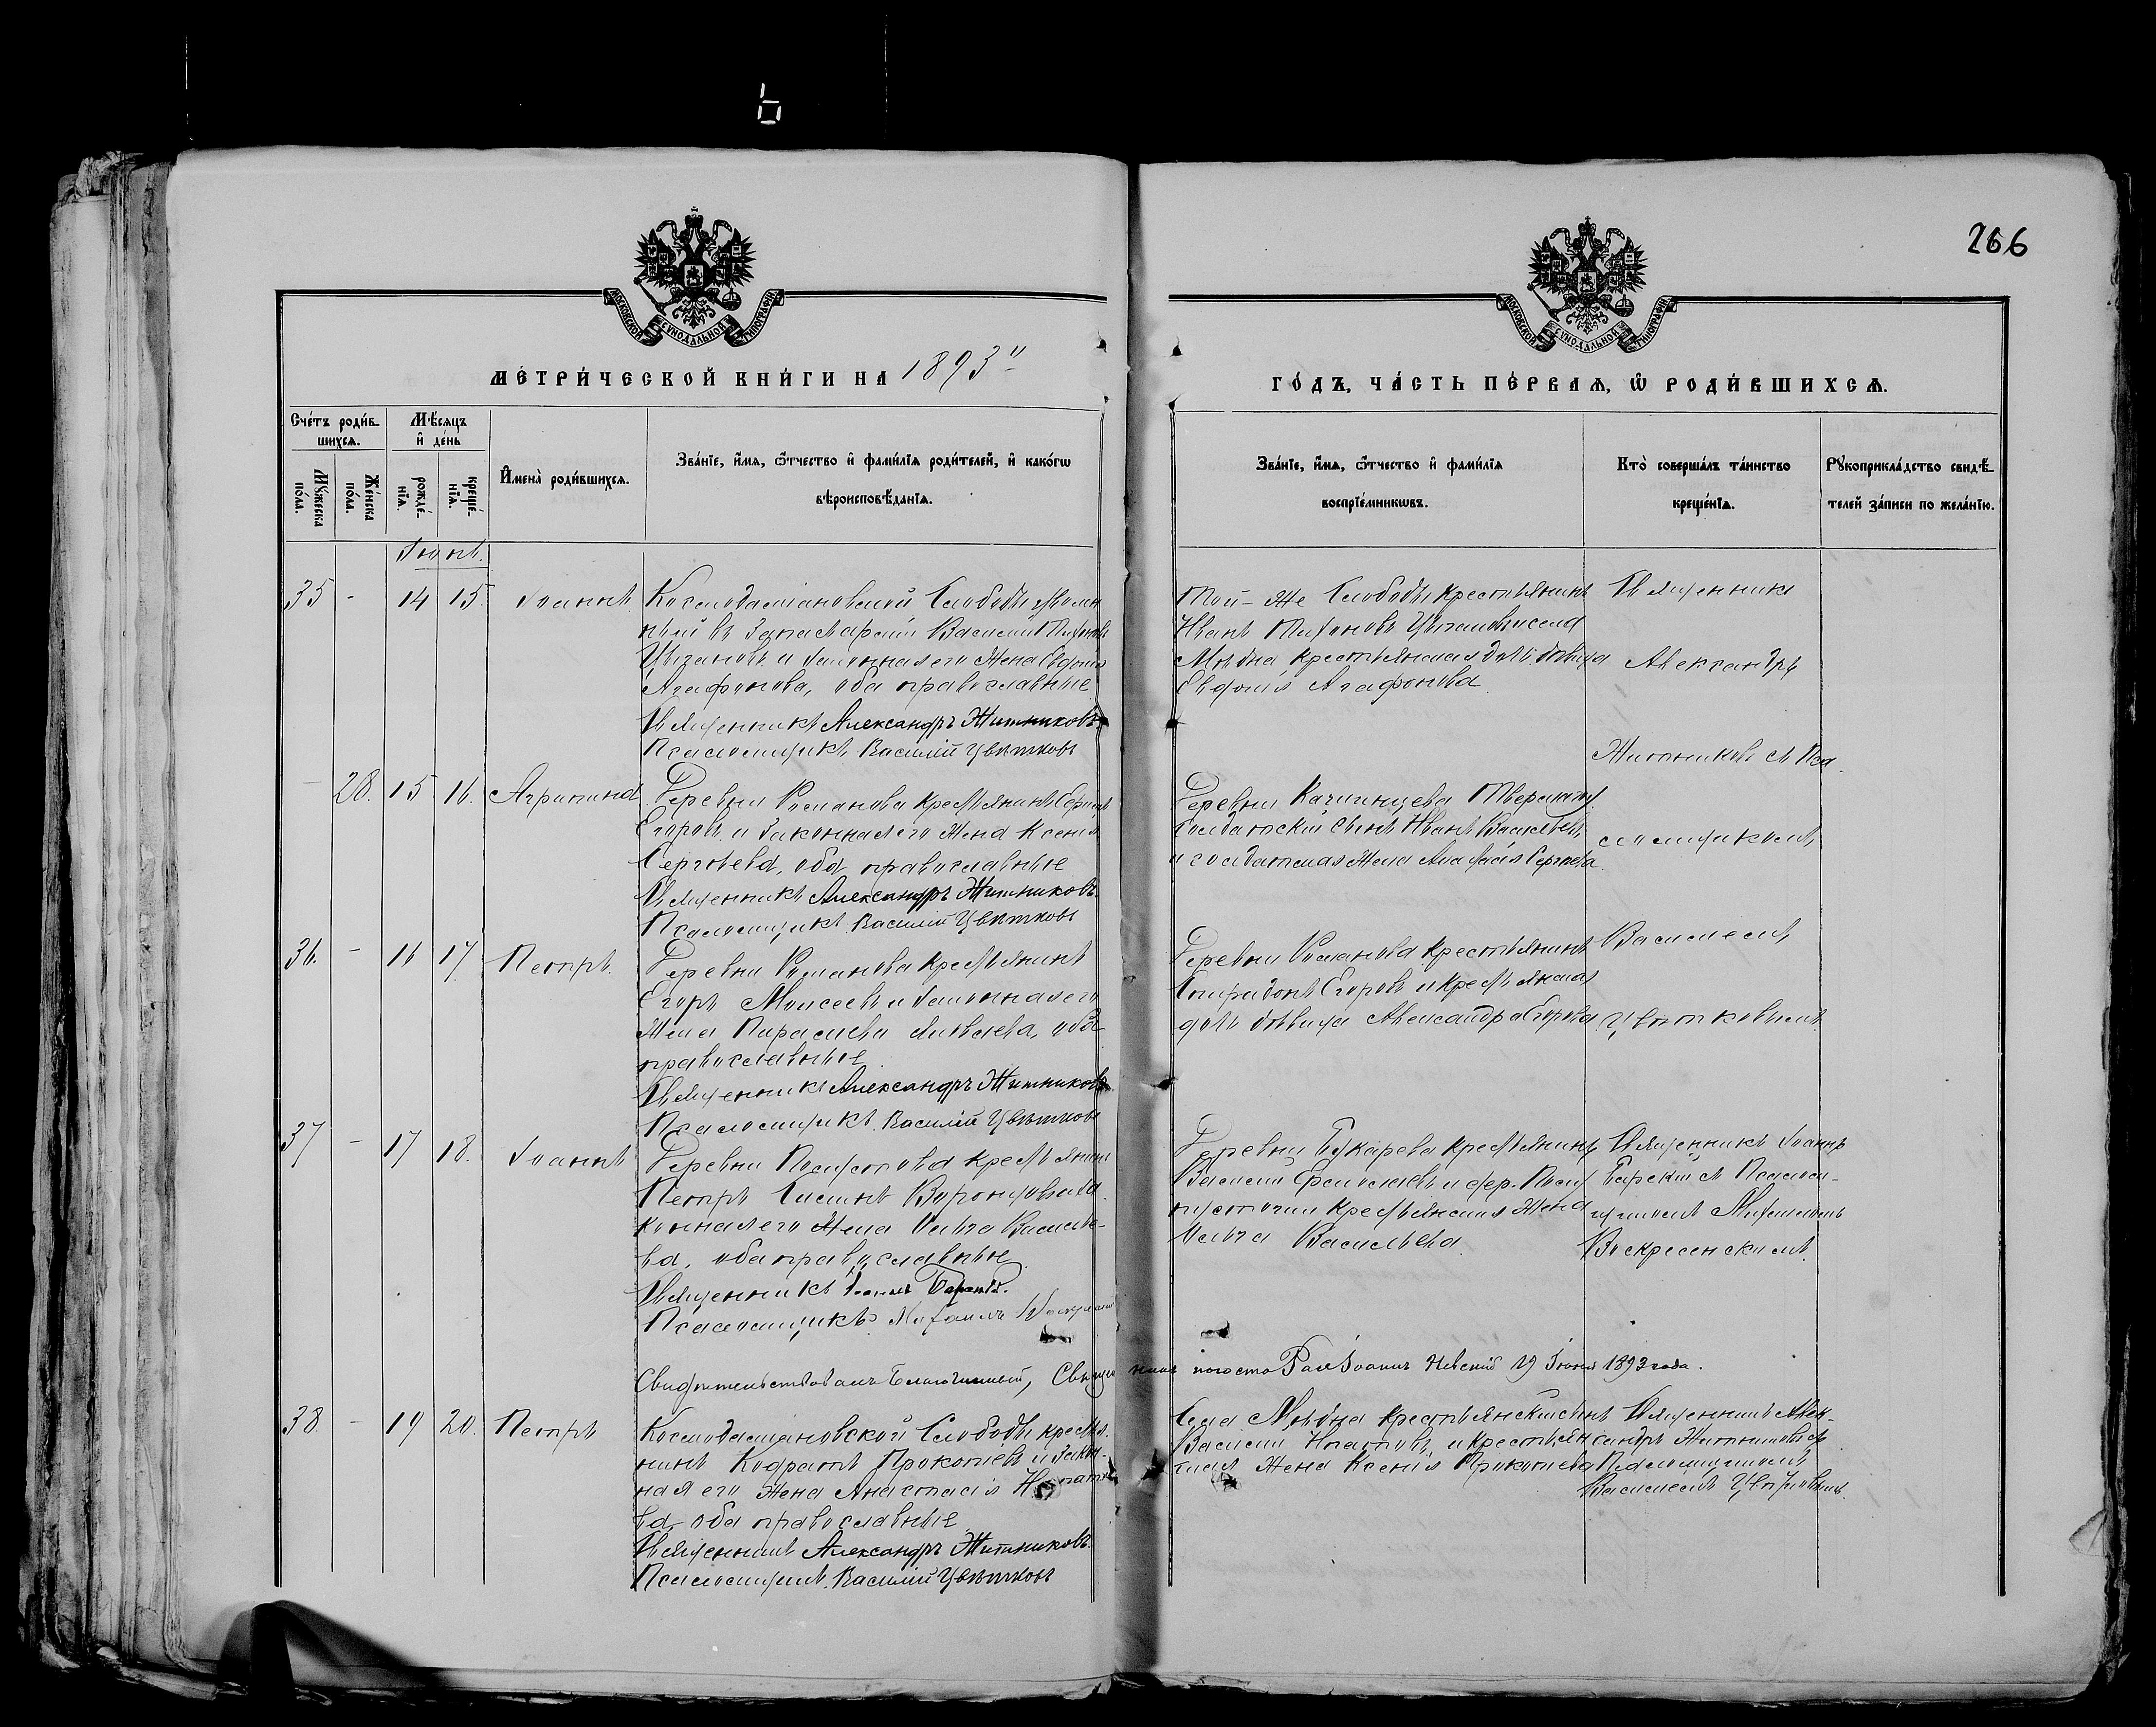 266
МОСКОВСКОЙ СѴНОДАЛЬНОЙ ТИПОГРАФІИ
МОСКОВСКОЙ СѴНОДАЛЬНОЙ ТИПОГРАФІИ
МЕТРИ́ЧЕСКОЙ КНИ́ГИ НА 1893й
ГО́ДЪ, ЧА́СТЬ ПЕ́РВАѦ, Ѡ҆ РОДИ́ВШИХСѦ.
Сче́тъ роди́в-
шихсѧ.
Мꙋ́жеска по́ла.
Же́нска по́ла.
Мѣ́сѧцъ
и҆ де́нь
рожде́-
нїѧ.
креще́-
нїѧ.
И҆мена̀ роди́вшихсѧ.
Зва́нїе, и҆́мѧ, ѻ҆́тчество и҆ фами́лїѧ роди́телей, и҆ како́гѡ
вѣроисповѣ́данїѧ.
Зва́нїе, и҆́мѧ, ѻ҆́тчество и҆ фами́лїѧ
воспрїе́мникѡвъ.
Кто̀ соверша́лъ та́инство
креще́нїѧ.
Рꙋкоприкла́дство свидѣ́-
телей за́писи по жела́нїю.
Іюнь.
35 - 14 15. Іоаннъ.
Космодаміановской Слободы
въ Запас Василій Тихоновъ
Цыгановъ и законная его жена Евдокія
Агафонова, оба православные
Священникъ Александръ Житниковъ
Псаломщикъ Василій Цвѣтковъ
Той-же Слободы крестьянинъ
Иванъ Тихоновъ Цыгановъ и села
Мѣдна крестьянская дѣвица
Евфимія Агафонова
Священникъ
Александръ
Житниковъ съ Пса
- 28. 15 16. Агрипина
Деревни Романова крестьянинъ Сергій
Егоровъ и законная его жена Ксенія
Сергѣева, оба православные
Священникъ Александръ Житниковъ
Псаломщикъ Василій Цвѣтковъ
Деревни
солдатскій сынъ Иванъ Васильевъ,
и солдатская жена Сергѣева
ломщикомъ,
36. - 16 17. Петръ.
Деревни Романова крестьянинъ
Егоръ Моисеевъ и законная его
жена Параскева Яковлева, оба
православные
Священникъ Александръ Житниковъ
Псаломщикъ Василій Цвѣтковъ
Деревни Романова крестьянинъ
Спиридонъ Егоровъ и крестьянская
дочь дѣвица Александра Егорова
Василіемъ
Цвѣтковымъ.
37 - 17 18. Іоаннъ
Деревни крестьянинъ
Петръ и за
конная его жена Ольга Василье-
ва, оба православные
Священникъ Іоаннъ
Псаломщикъ Михаилъ
Деревни Букарева крестьянинъ
Василій и дер.
крестьянская жена
Ольга Васильева.
Священникъ Іоаннъ
съ Псалом-
щикомъ Михаиломъ
Воскресенскимъ.
Свидѣтельствовалъ Благочинный, Священникъ погоста Рай Іоаннъ Невскій 19 Іюня 1893 года.
38. - 19 20. Петръ
Космодаміановской Слободы кресть-
нинъ Кодратъ Прокопіевъ и закон-
ная его жена Анастасія
ва, оба православные
Священникъ Александръ Житниковъ
Псаломщикъ Василій Цвѣтковъ
Села Мѣдна крестьянскій сынъ
Василій Игнатовъ, и крестьян
ская жена Ксенія Прокопіева
Священникъ Алек-
сандръ Житниковъ съ
Псаломщикомъ
Василіемъ Цвѣтковымъ.